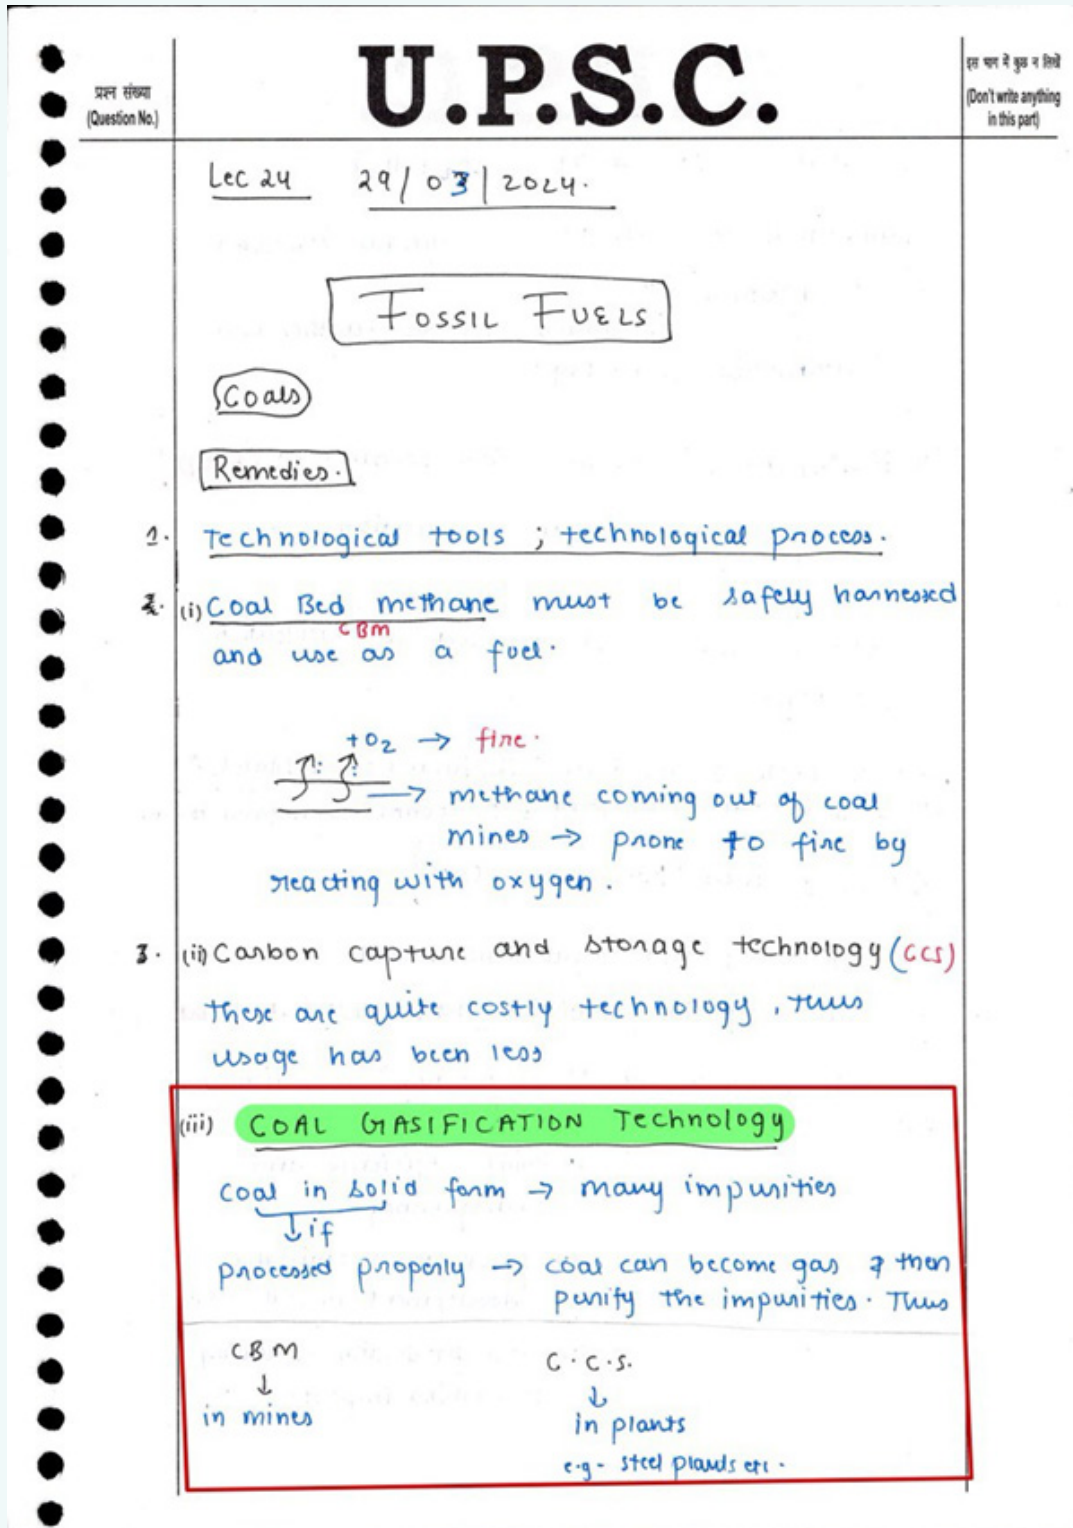 U.P.S.C.
प्रश्न संख्या
(Question No.)
इस भाग में कुछ न लिखें
(Don't write anything
in this part)
Lec 24 29/03/2024.
FOSSIL FUELS
Coals
Remedies.
1. Technological tools ; technological process.
(i) Coal Bed methane must be safely harnessed
CBM
and use as a fuel.
+O2 → fire.
→ methane coming out of coal
mines → prone to fire by
reacting with oxygen.
(ii) Carbon capture and storage technology (CCS)
These are quite costly technology, thus
usage has been less
(iii) COAL GASIFICATION Technology
Coal in solid form → many impurities
↓ if
processed properly → coal can become gas & then
purify the impurities. Thus
CBM
↓
in mines
C.C.S.
↓
in plants
e.g- steel plants etc.